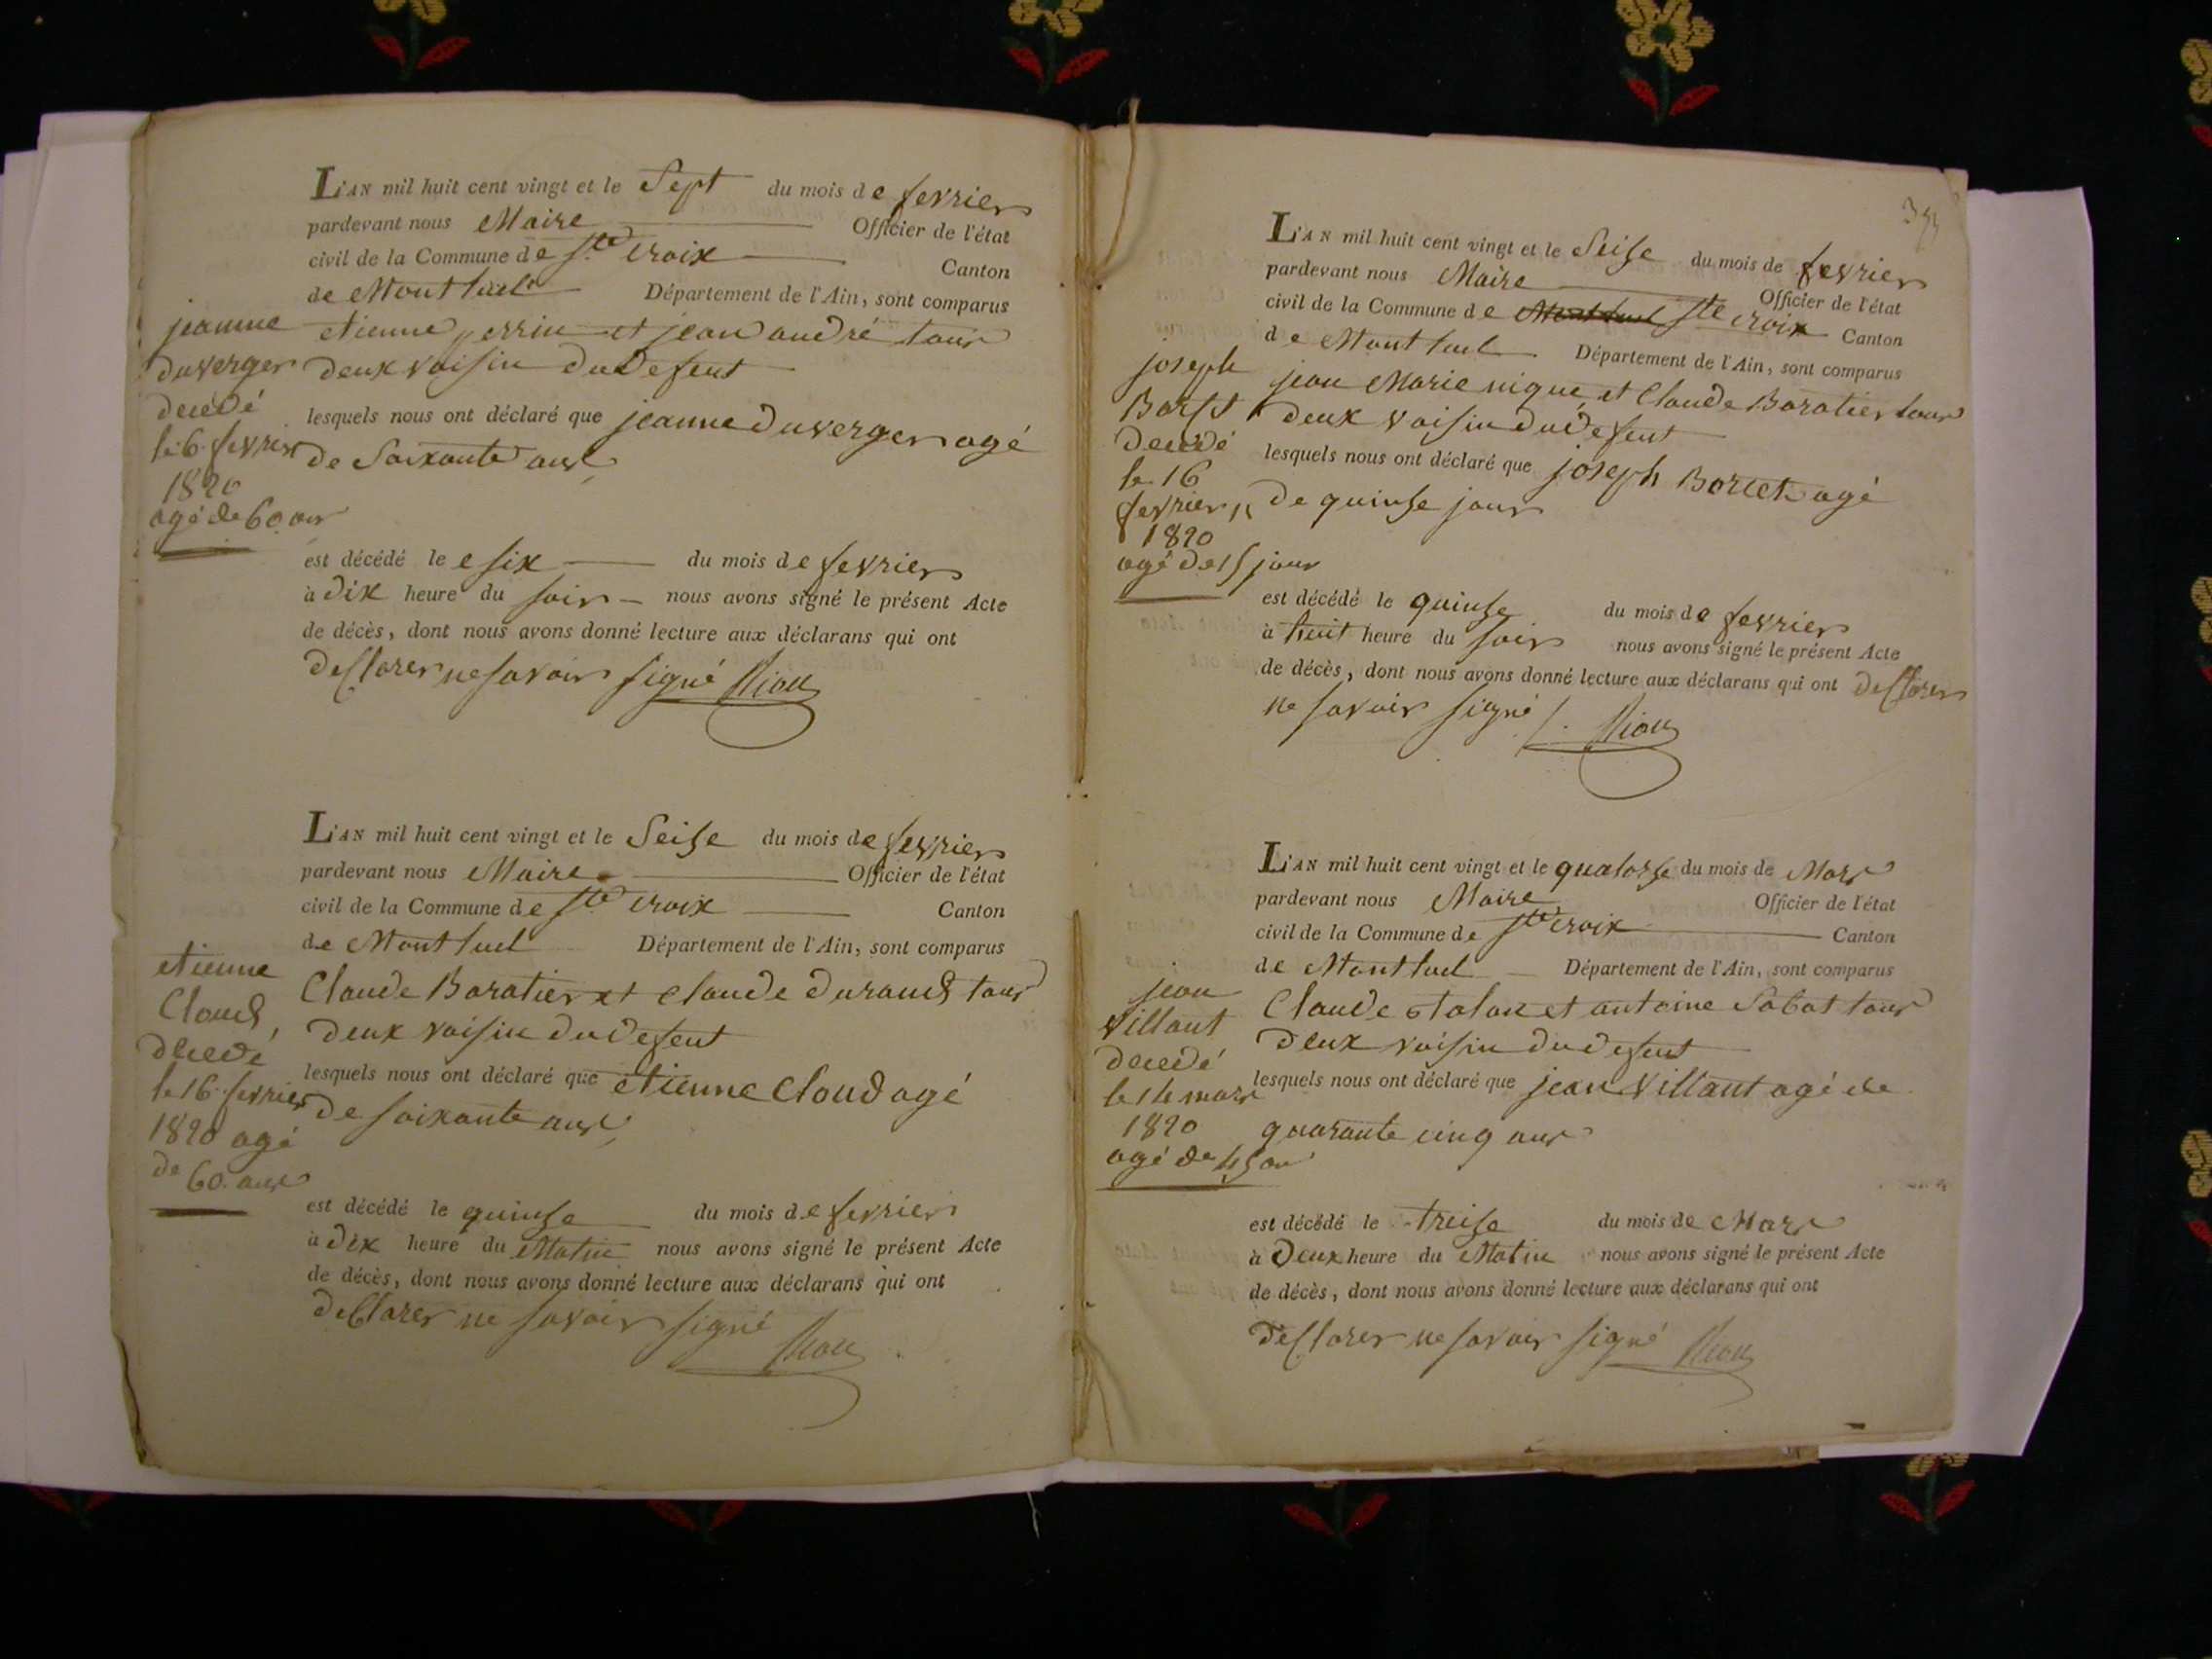 L'AN mil huit cent vingt et le Sept du mois de fevrier
pardevant nous Maire Officier de l'état
civil de la Commune de Ste croix Canton
de Montluel Département de l'Ain, sont comparus
etienne perrin et jean andré tous
deux voisin du defent
lesquels nous ont déclaré que jeanne duverger agé
de Soixante ans
est décédé le e six du mois de fevrier
à dix heure du soir nous avons signé le présent Acte
de décès, dont nous avons donné lecture aux déclarans qui ont
desclarer ne savoir signé Riou
jeanne
duverger
decédé
le 6 fevrier
1820
agé de 60 ans
L'AN mil huit cent vingt et le Seise du mois de fevrier
pardevant nous Maire Officier de l'état
civil de la Commune de Ste croix Canton
de Montluel Département de l'Ain, sont comparus
Claude Baratier et claude durand tous
deux voisin du defent
lesquels nous ont déclaré que etienne Cloud agé
de soixante ans
est décédé le quinse du mois de fevrier
à dix heure du Matin nous avons signé le présent Acte
de décès, dont nous avons donné lecture aux déclarans qui ont
desclarer ne savoir signé
Riou
etienne
Cloud,
decedé
le 16 fevrier
1820 agé
de 60 ans
L'AN mil huit cent vingt et le Seise du mois de fevrier
pardevant nous Maire Officier de l'état
civil de la Commune de Montluel Ste croix Canton
de Montluel Département de l'Ain, sont comparus
jean Marie nique et Claude Baratier tous
deux voisin du defent
lesquels nous ont déclaré que joseph Borcet agé
de quinse jours
est décédé le quinse du mois de fevrier
à huit heure du soir nous avons signé le présent Acte
de décès, dont nous avons donné lecture aux déclarans qui ont desclarer
ne savoir signé Riou
joseph
decedé
le 16
fevrier
1820
agé de 15 jours
L'AN mil huit cent vingt et le quatorse du mois de Mars
pardevant nous Maire Officier de l'état
civil de la Commune de Ste croix Canton
de Montluel Département de l'Ain, sont comparus
Claude et antoine Sabat tous
deux voisin du defent
lesquels nous ont déclaré que jean Villant agé de
quarante cinq ans
est décédé le treise du mois de Mars
à deux heure du Matin nous avons signé le présent Acte
de décès, dont nous avons donné lecture aux déclarans qui ont
desclarer ne savoir signé Riou
jean
Villant
decedé
le 14 mars
1820
agé de 45 an